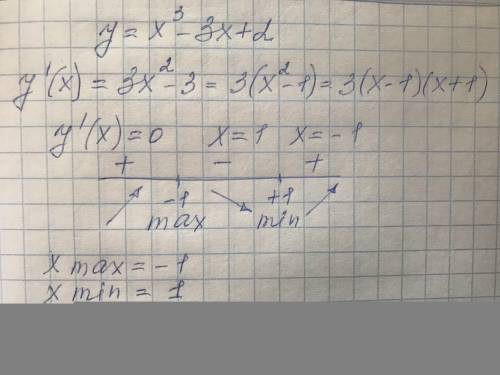 y = x³ - 3x + 2
y'(x) = 3x² - 3 = 3(x² - 1) = 3(x - 1)(x + 1)
y'(x) = 0 x = 1 x = -1
+ - +
-1 +1
max min
x max = -1
x min = 1